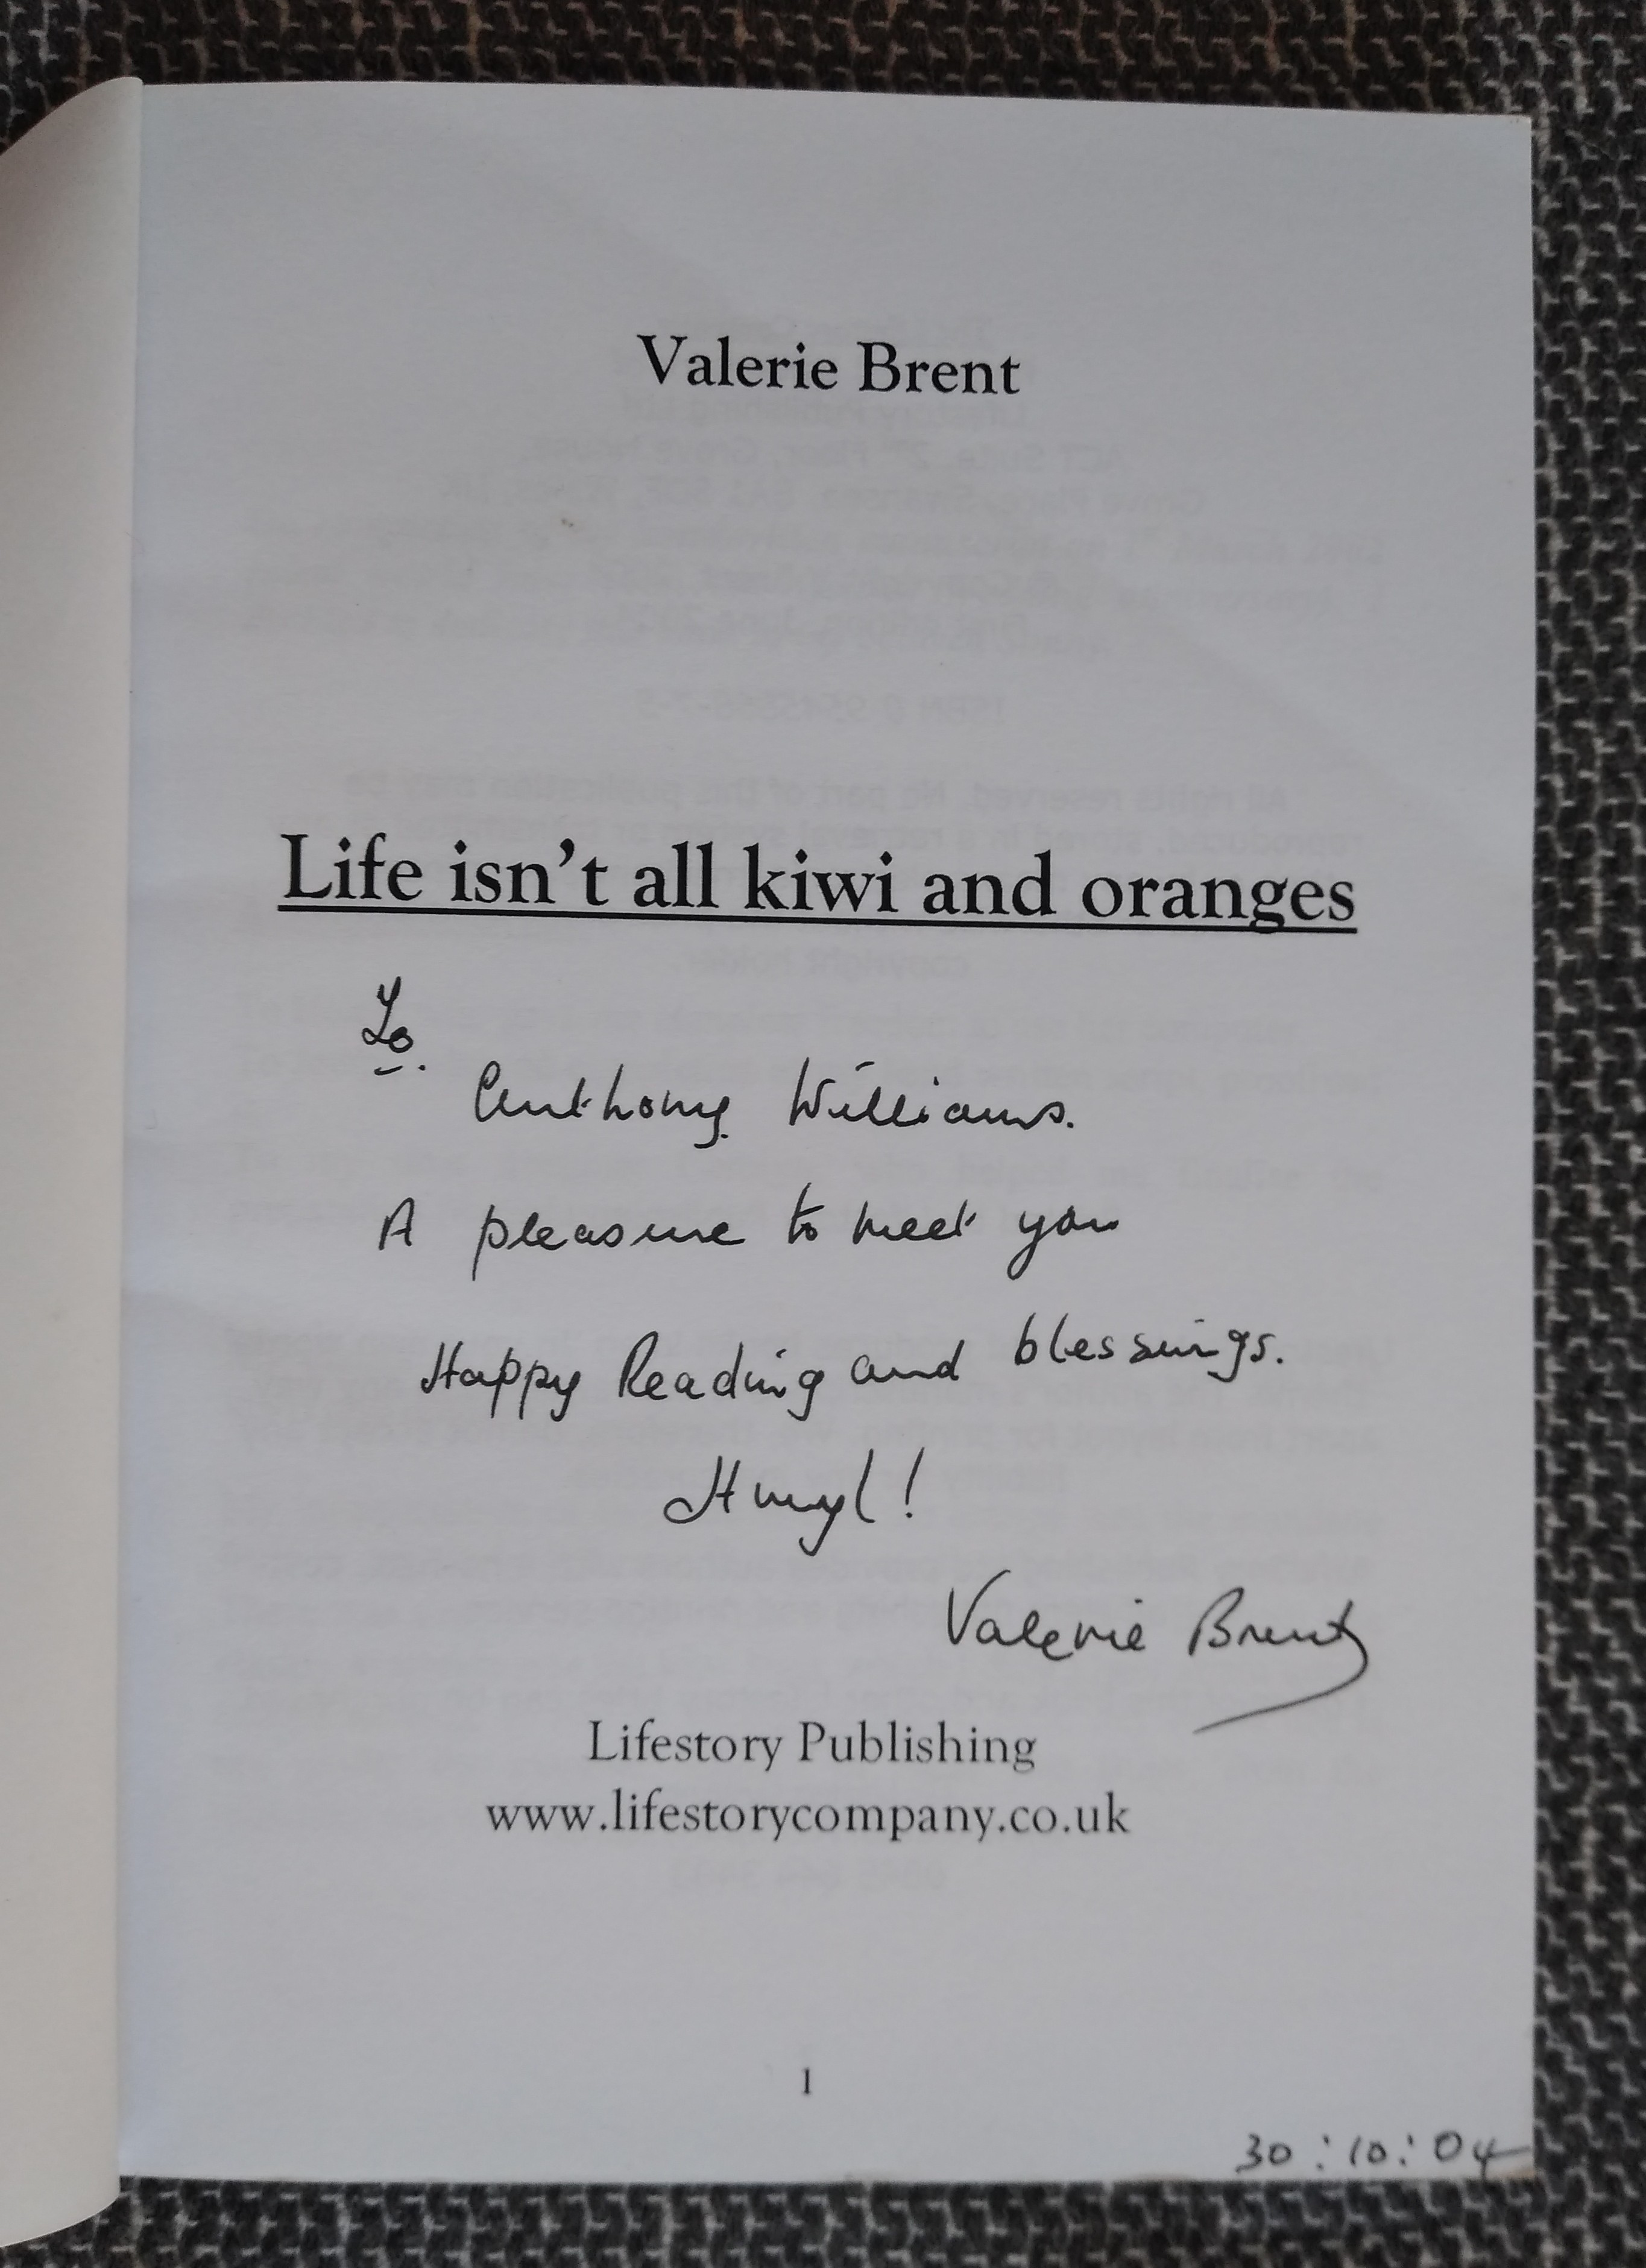 Valerie Brent
Life isn't all kiwi and oranges
To.
Anthony Williams.
A pleasure to meet you
Happy Reading and blessings.
Hwyl!
Valerie Brent
Lifestory Publishing
www.lifestorycompany.co.uk
1
30:10:04